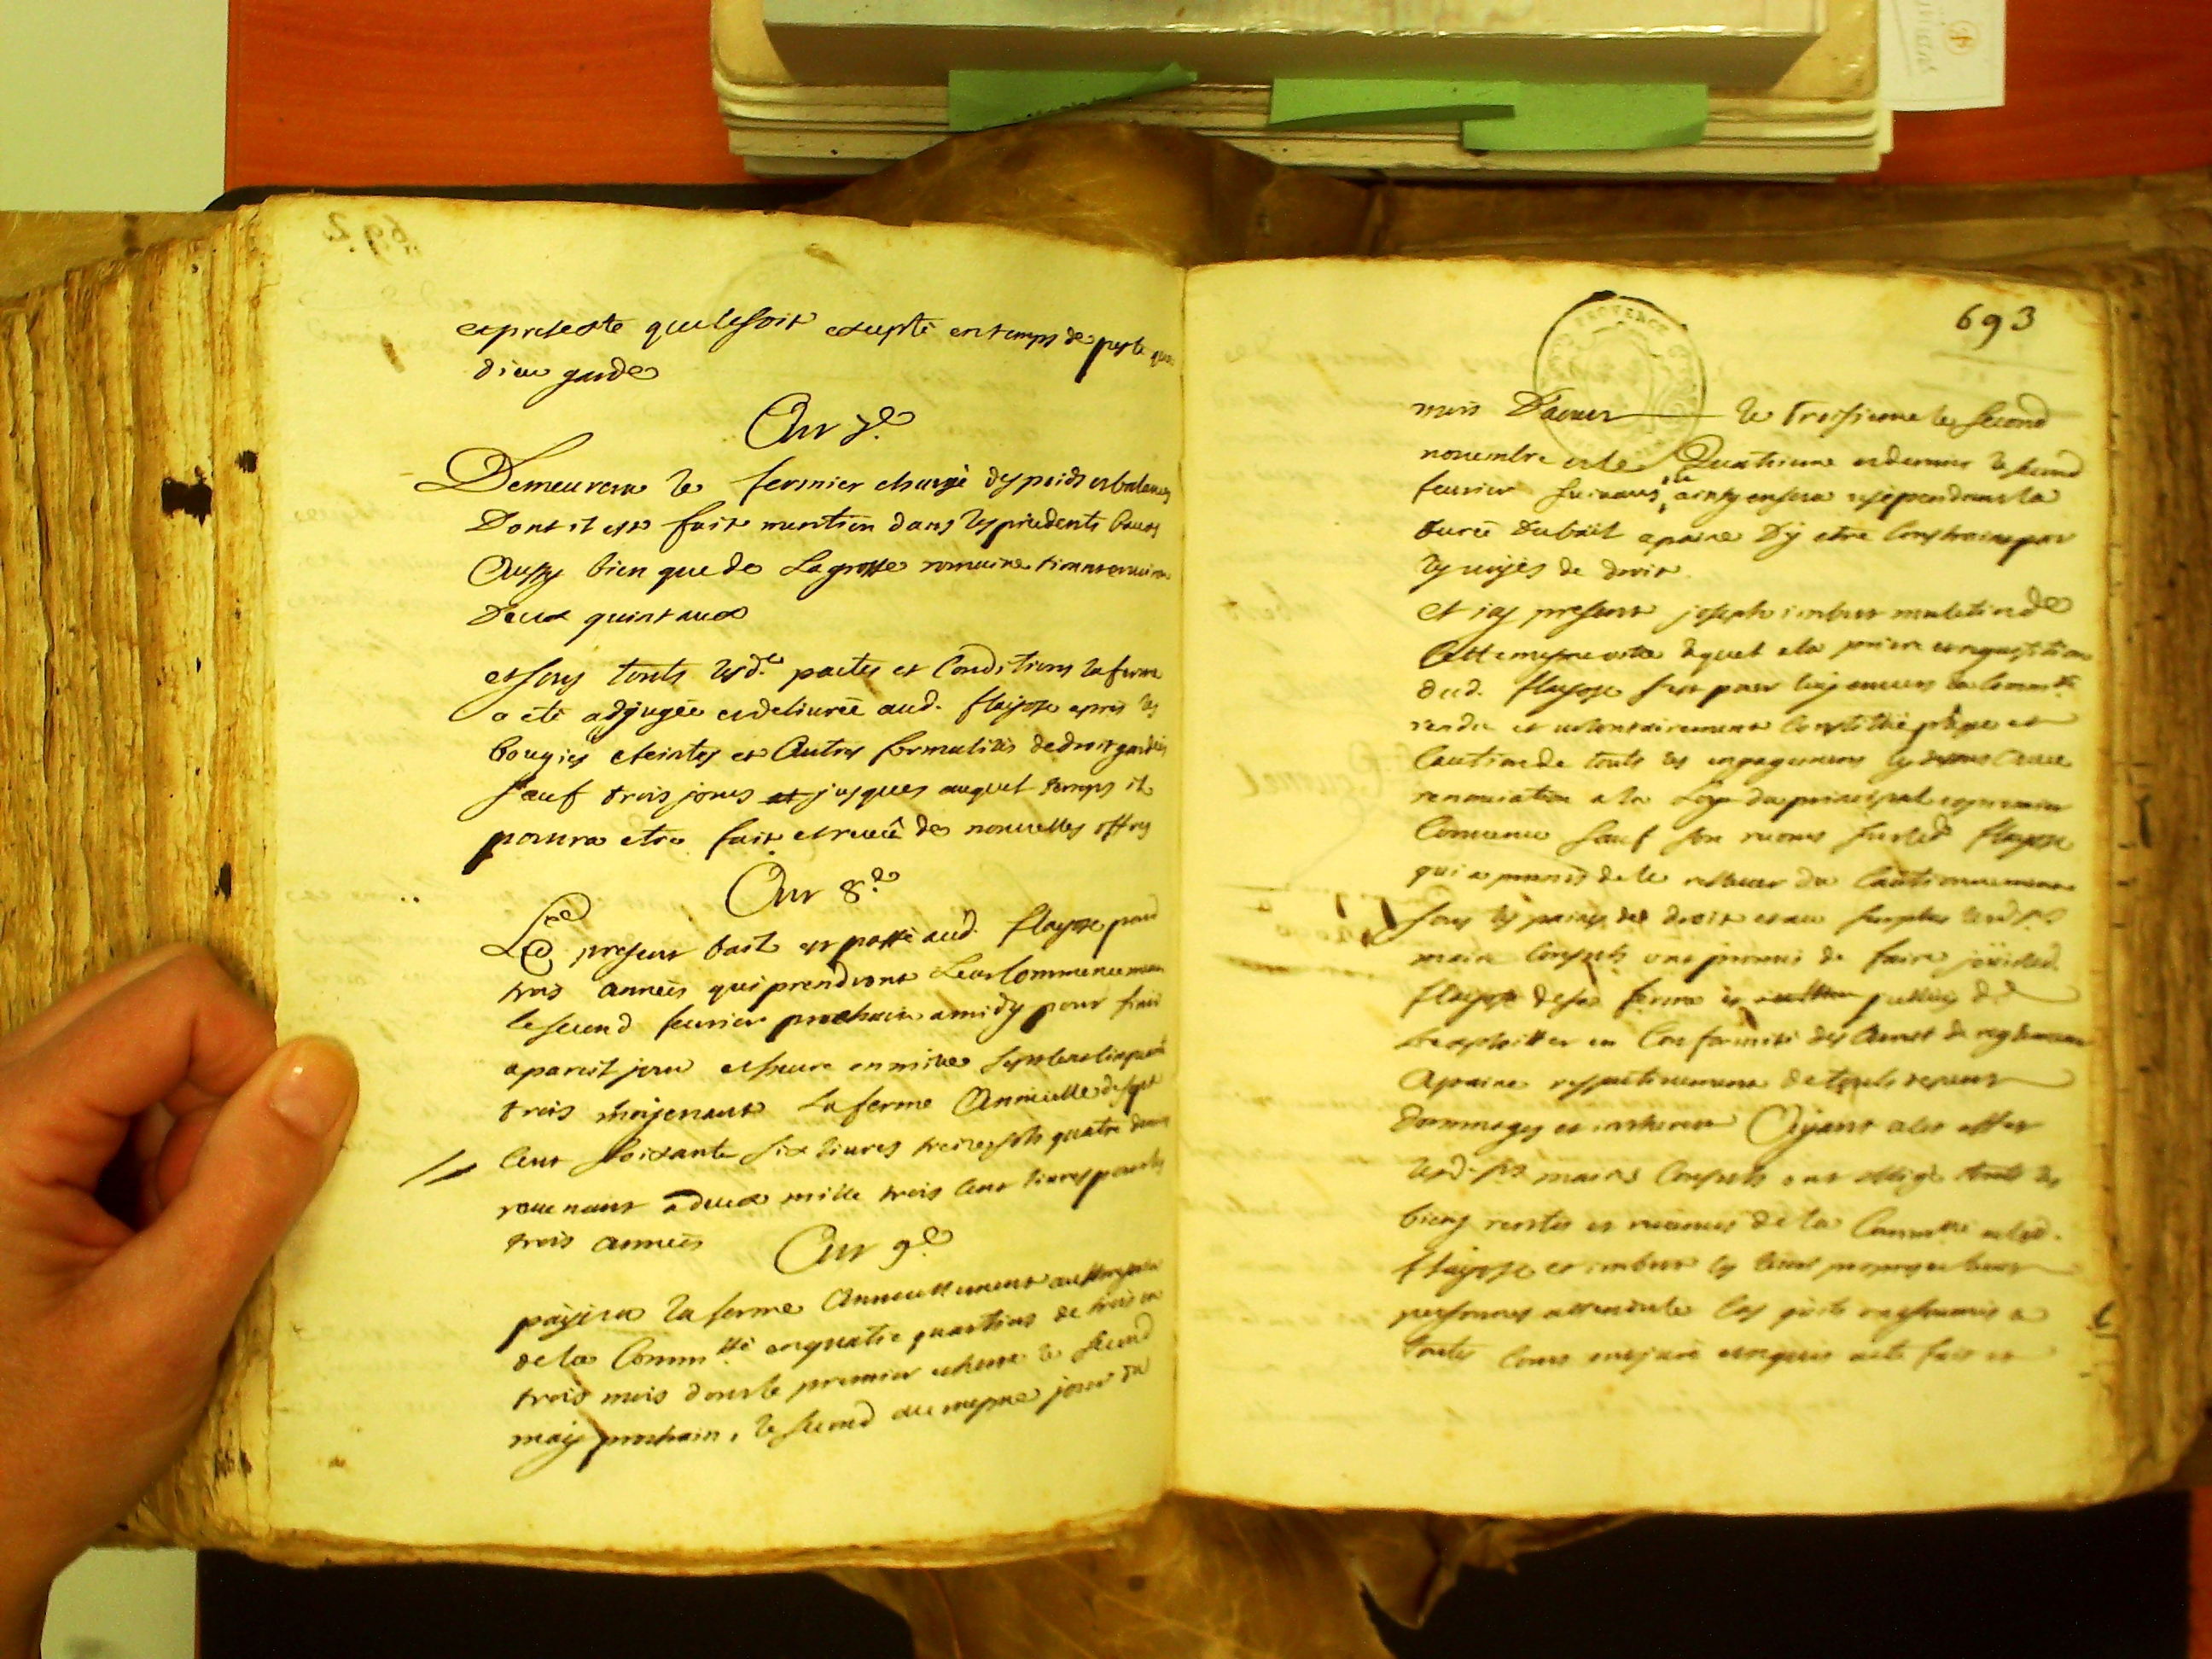 et pretexte que ce soit excepté en temps de peste que
dieu garde
Art 7.e
Demeurera le fermier chargé des poids et balances
Dont il est fait mention dans les précédents baux
Aussy bien que de La grosse romaine tirant environ
Deux quintaux
et sous touts lesd. pactes et Conditions la ferme
a eté adjugée et delivrée aud. flayosc aprés les
bougies eteintes et Autres formalités de droit gardées
sauf trois jours jusques auquel temps il
pourra etre fait et receu de nouvelles offres
Art 8.e
Led. present bail est passé aud. flayosc pour
trois années qui prendront Leur Commencement
le second fevrier prochain a midy pour finir
a pareil jour et heure en mille sept cens cinquante
trois moyenant La ferme Annuelle de sept
Cent soixante six livres treize sols quatre deniers
revenant a deux mille trois Cent livres pour les
trois années
Art 9.e
payera la ferme Annuellement au
de la Comm.té en quatre quartiers de trois en
trois mois dont le premier echerra le second
may prochain, le second au mesme jour du
693
mois D'aout le Troisieme le second
novembre et le Quatrieme et dernier le second
fevrier suivant, ainsy en sera usé pendant la
durée du bail a peine D'y etre Constraint par
les voyes de droit.
et icy present joseph imbert muletier de
Cette mesme ville lequel a la priere et requisition
dud. flayosc s'est pour luy envers la Comm.té
rendu et volontairement Constitué plege et
Caution de touts les engagemens cy dessus avec
renonciation a la Loy du principal
Convenu sauf son recours sur led. flayosc
qui a promis de le relever du Cautionnement
sous les peines de droit et au surplus lesd. srs
maire Consuls ont promis de faire jouir led.
flayosc de sa ferme
en Conformité des Arrest de reglement
A peine respectivement de touts depens
dommages et interets Ayant a cet effet
lesd. srs maire Consuls ont obligé touts les
biens rentes et revenus de la Comm.té et led.
flayosc et imbert les leurs propres et leurs
personnes attendu le Cas qu'ils ont soumis a
toutes Cours ont juré et requis acte fait et